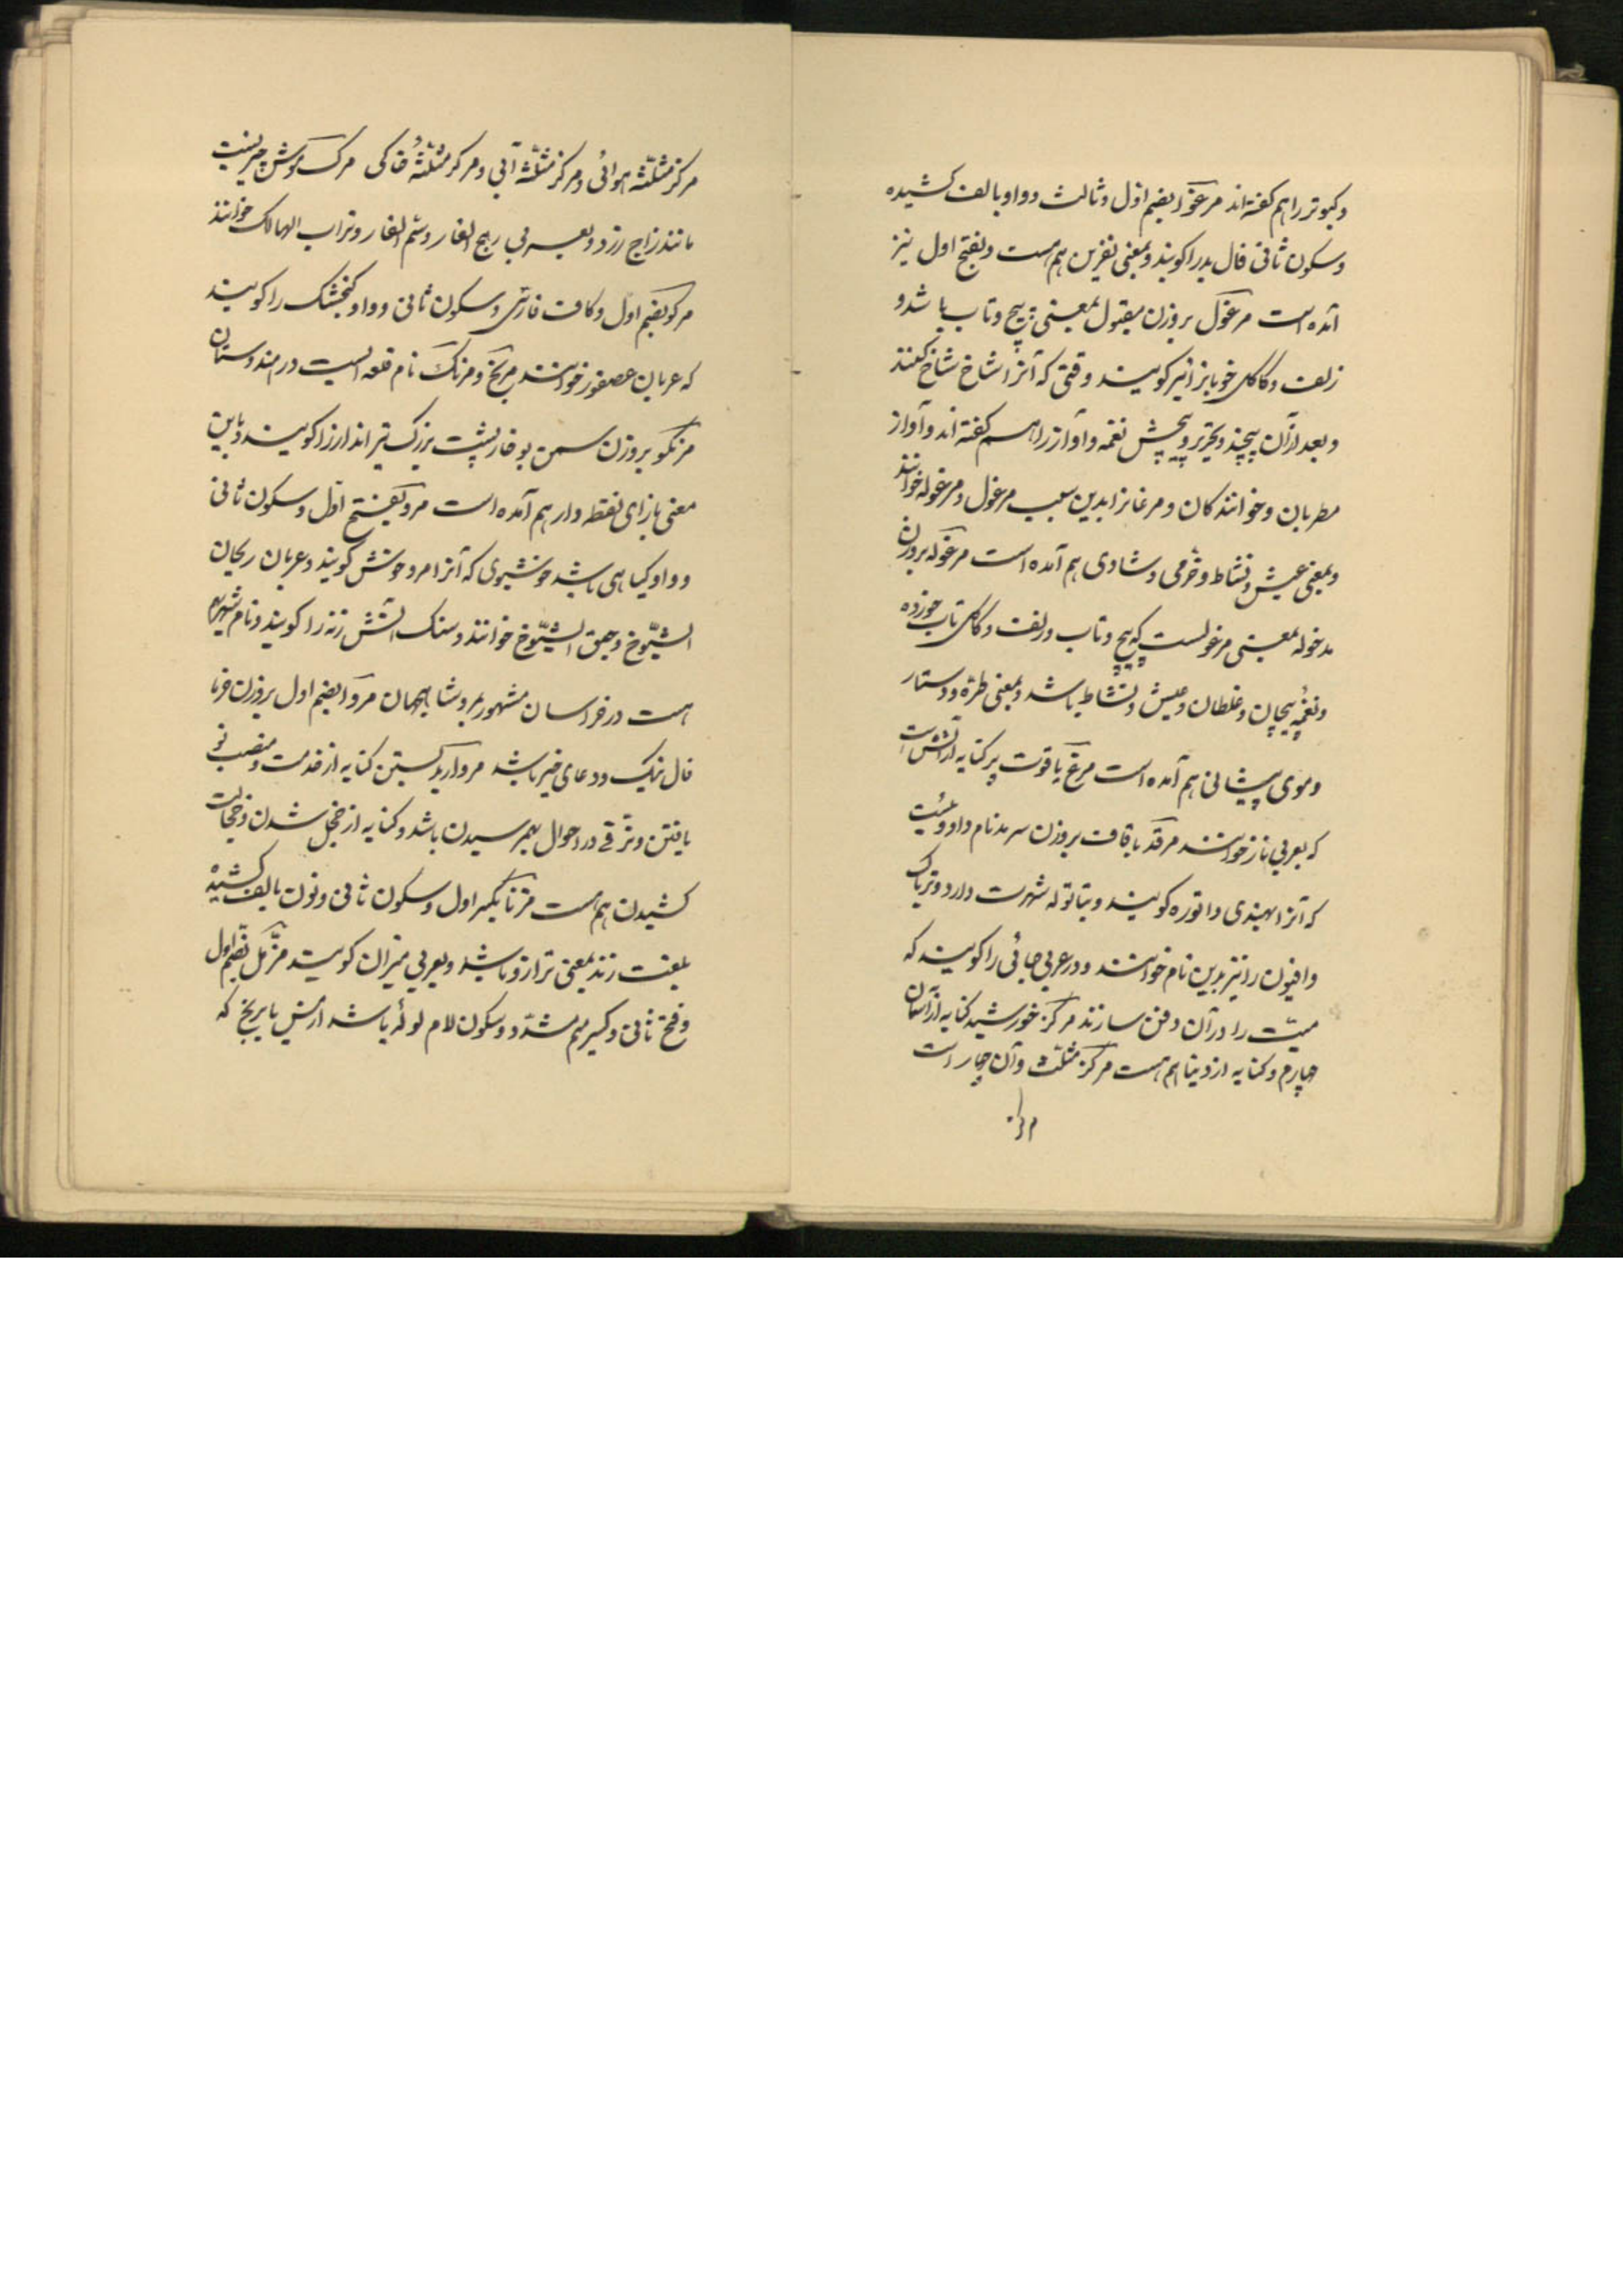 وکبوتر را هم کفته اند مرغوا بضم اول وثالث وواو بالف کشیده
وسکون ثانی فال بد را کویند وبمعنی نفرین هم هست وبفتح اول نیز
آمده است مرغول بروزن مقبول بمعنی پیچ وتاب باشد و
زلف وکاکل خوبانرا نیز کویند وقتی که آنرا شاخ شاخ کنند
وبعد ازآن پیچند وتحریر وپیچش نغمه وآواز را هم کفته اند وآواز
مطربان وخوانندکان ومرغانرا بدین سبب مرغول ومرغوله خوانند
وبمعنی عیش ونشاط وخرمی وشادی هم آمده است مرغوله بروزن
مدخوله بمعنی مرغولست که پیچ وتاب وزلف وکاکل تاب خورده
ونغمهٔ پیچان وغلطان وعیش ونشاط باشد وبمعنی طره ودستار
وموی پیشانی هم آمده است مرغ یاقوت پر کنایه ازآتش است
که بعربی نار خوانند مرقد با قاف بروزن سرمد نام داروئیست
که آنرا بهندی داتوره کویند وبتاتوله شهرت دارد وتریاک
وافیون را نیز بدین نام خوانند ودر عربی جائی را کویند که
میّت را در آن دفن سازند مرکز خورشید کنایه ازآسمان
چهارم وکنایه ازدنیا هم هست مرکز مثلث وآن چهار است
مرکز مثلثهٔ هوائی ومرکز مثلثهٔ آبی ومرکز مثلثهٔ خاکی مرک موش چیزیست
مانند زاج زرد وبعربی رهج الفار وسم الفار وتراب الهالک خوانند
مرکو بضم اول وکاف فارسی وسکون ثانی وواو کنجشک را کویند
که عربان عصفور خوانند مریخ ومرنک نام قلعه ایست در هندوستان
مرنکو بروزن سمن بو خارپشت بزرک تیرانداز را کویند وباین
معنی بازای نقطه دار هم آمده است مرو بفتح اول وسکون ثانی
وواو کیاهی باشد خوشبوی که آنرا مرو خوش کویند وعربان ریحان
الشیّوخ وحبق الشیّوخ خوانند وسنک آتش زنه را کویند ونام شهری هم
هست در خراسان مشهور بمرو شاهجهان مروا بضم اول بروزن خرما
فال نیک ودعای خیر باشد مروارید بستن کنایه از خدمت ومنصب نو
یافتن وترّقی در احوال بهم رسیدن باشد وکنایه از خجل شدن وخجالت
کشیدن هم هست مزنا بکسر اول وسکون ثانی ونون بالف کشیده
بلغت زند بمعنی ترازو باشد وبعربی میزان کویند مزّمل بضم اول
وفتح ثانی وکسر میم مشدد وسکون لام لوله باشد ازمس یا برنج که